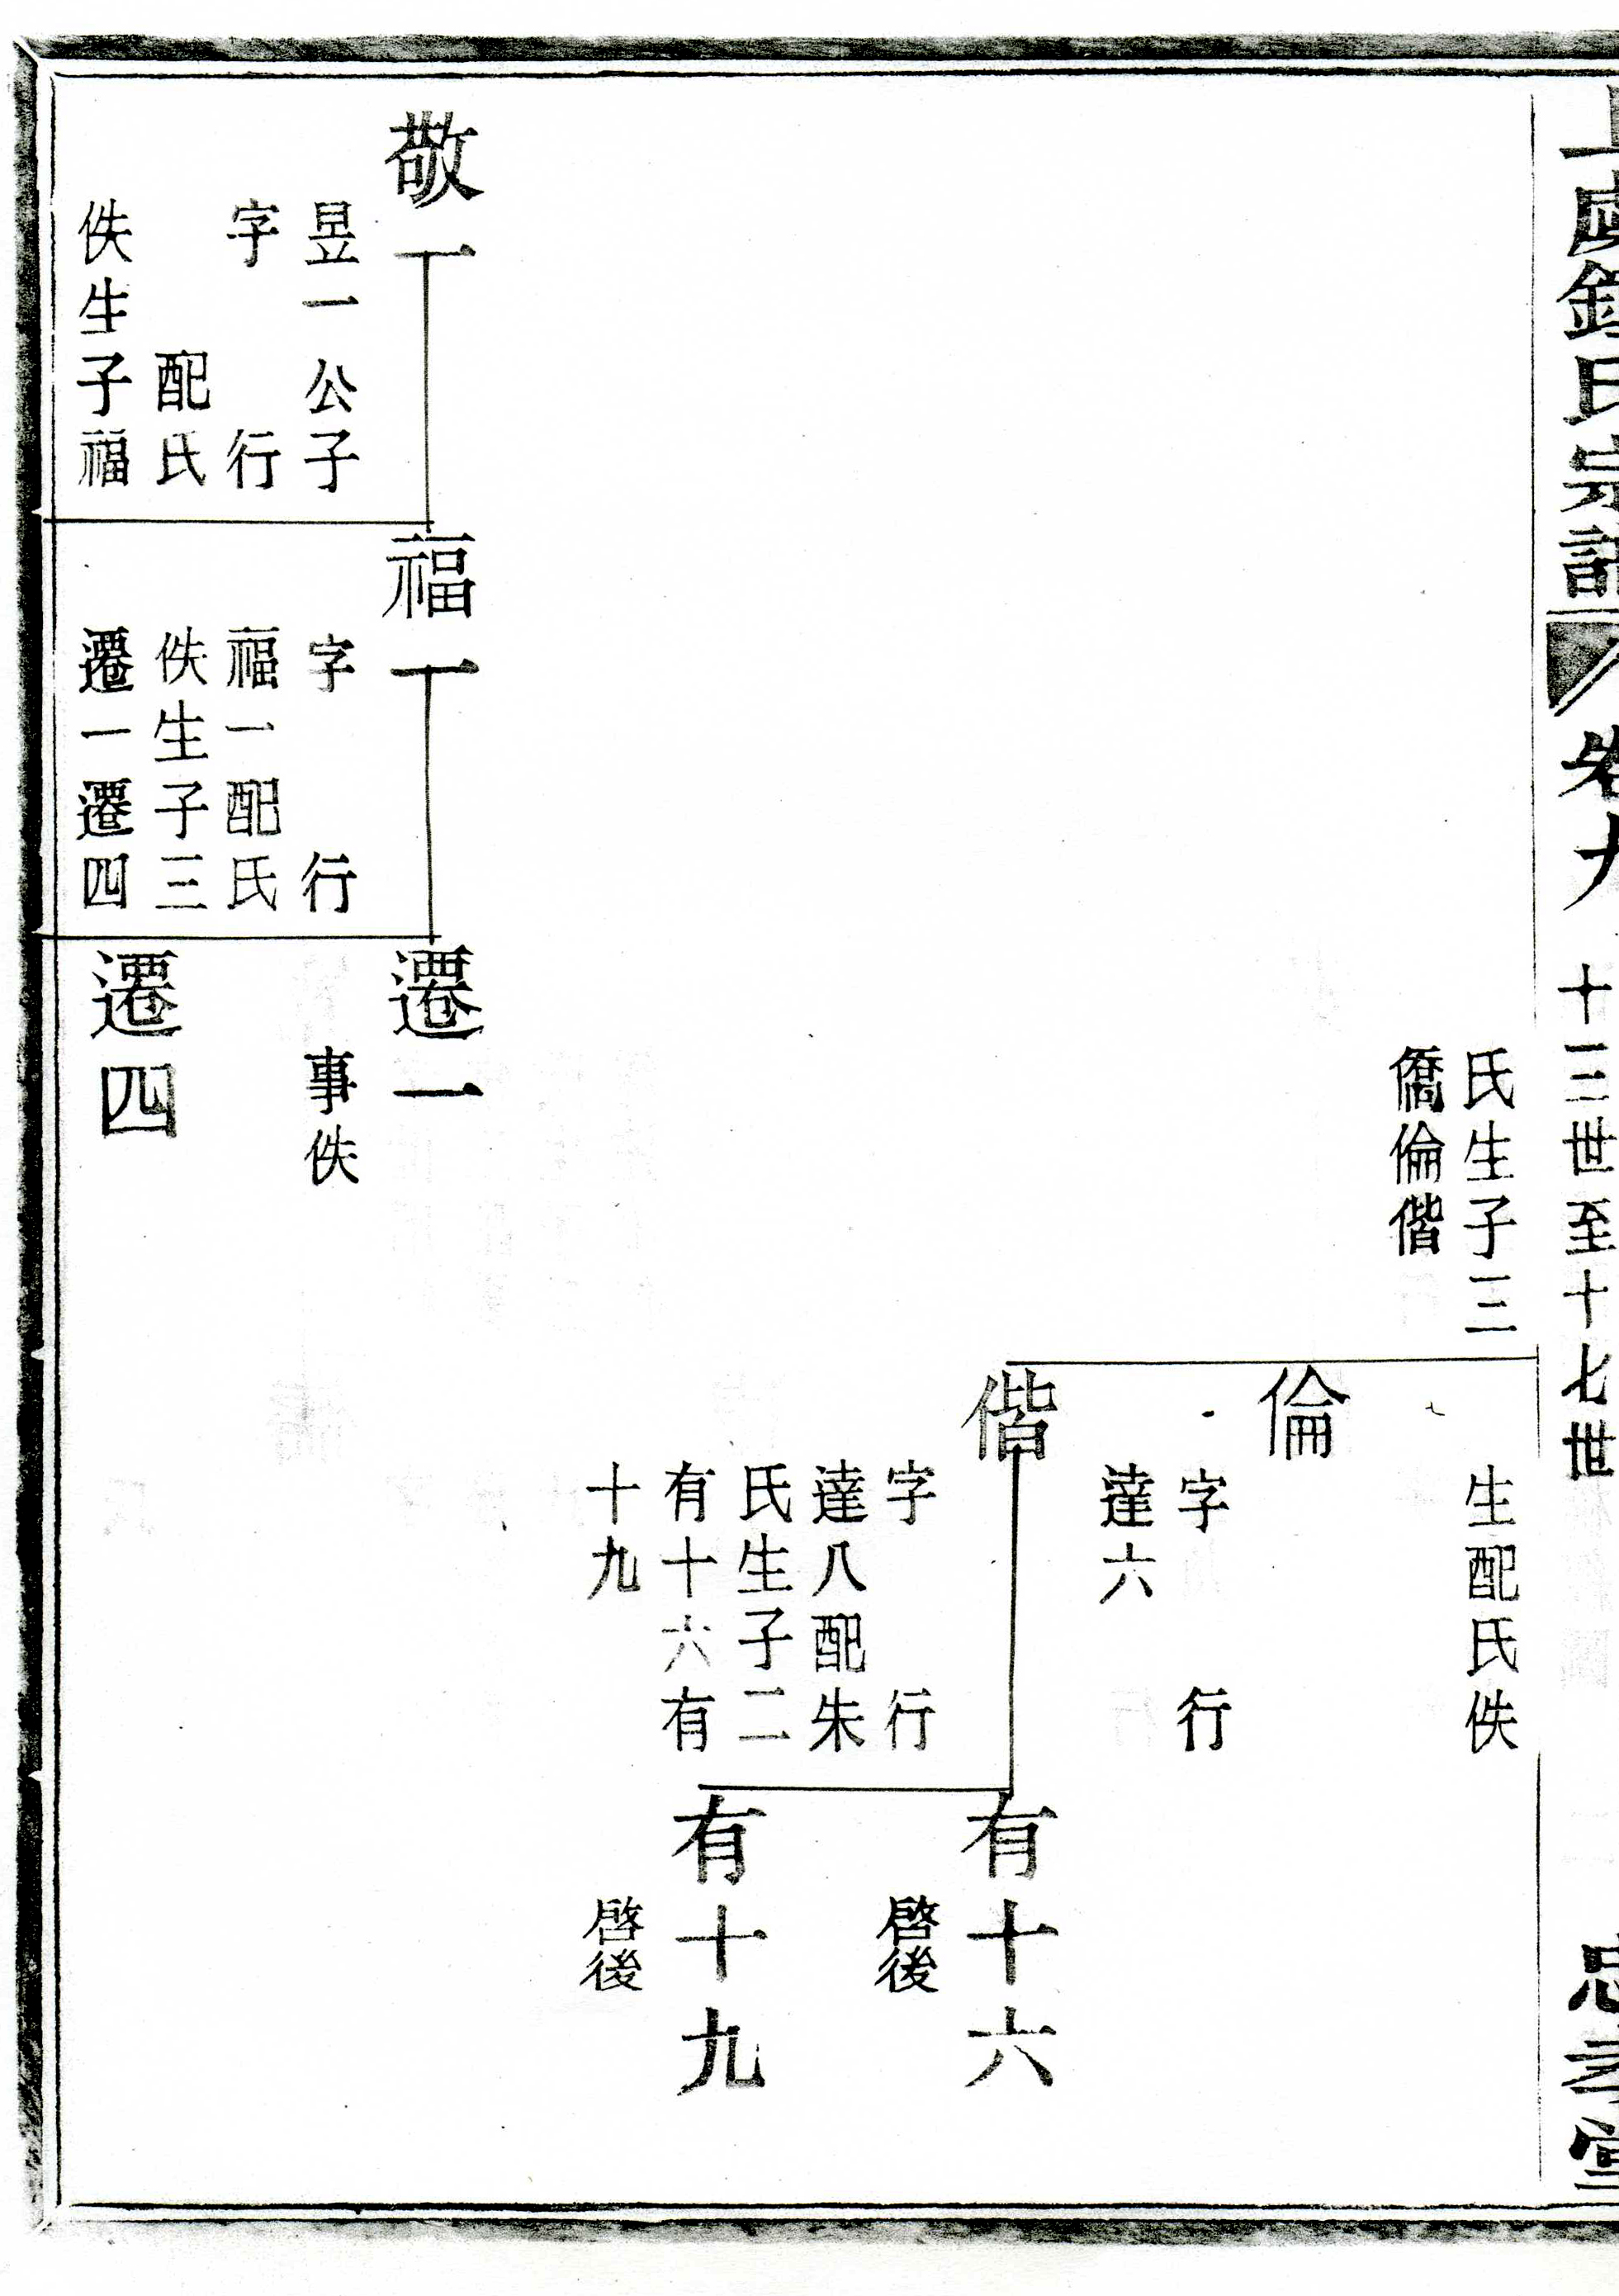 氏宗譜
卷九
十三世至十七世
忠孝堂
氏生子三
僑倫偕
生配氏佚
倫
字 行
達六
偕
字 行
達八配朱
氏生子二
有十六有
十九
有十六
啓後
有十九
啓後
敬一
昱一公子
字 行
配氏
佚生子福
福一
字 行
福一配氏
佚生子三
遷一遷四
遷一
事佚
遷四